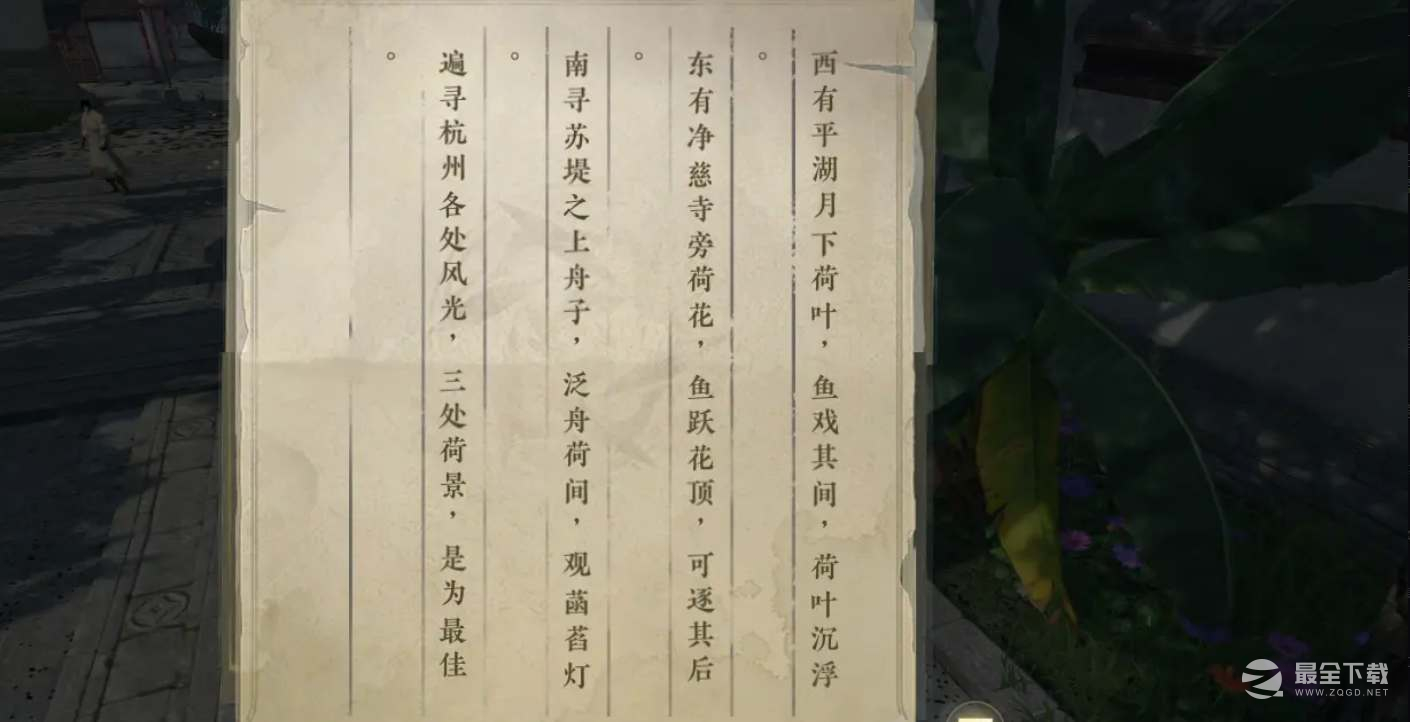 西有平湖月下荷叶，鱼戏其间，荷叶沉浮
。
东有净慈寺旁荷花，鱼跃花顶，可逐其后
。
南寻苏堤之上舟子，泛舟荷间，观菡萏灯
。
遍寻杭州各处风光，三处荷景，是为最佳
。
最全下载
WWW.ZQGD.NET